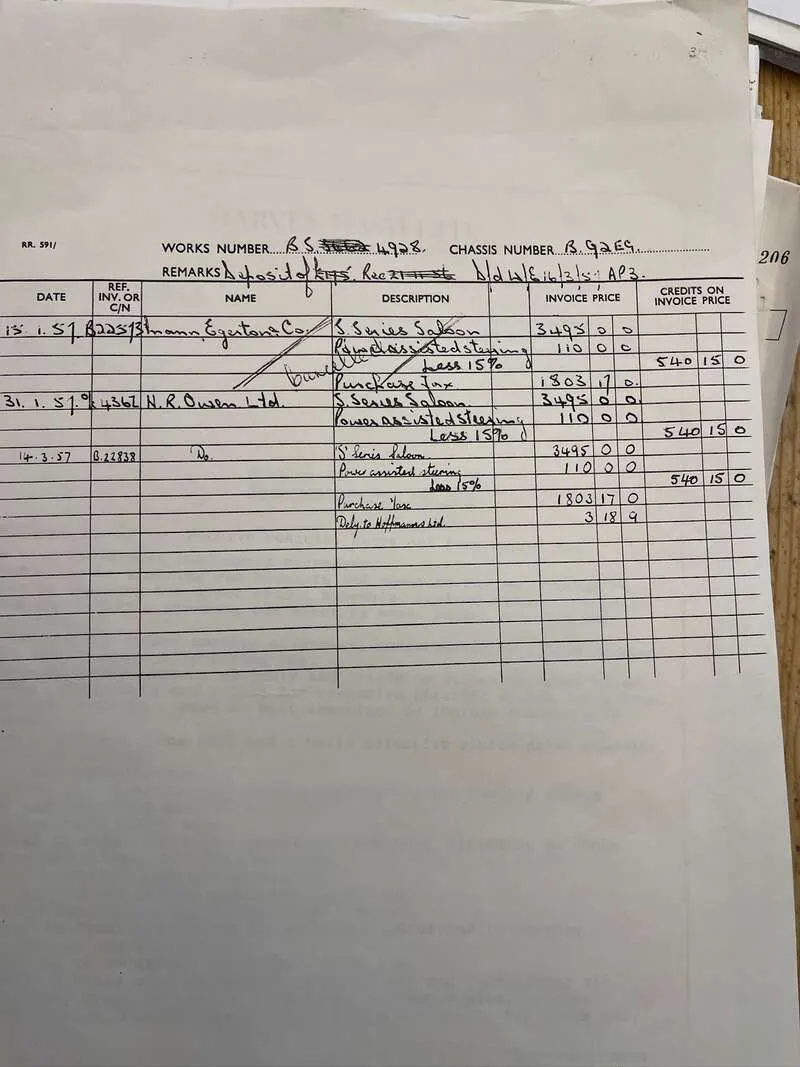 RR. 591/
WORKS NUMBER B S. 4928. CHASSIS NUMBER B.92EG.
REMARKS Deposit of Rec D/d W/E 16/3/5 AP3.
DATE REF. INV. OR C/N NAME DESCRIPTION INVOICE PRICE CREDITS ON INVOICE PRICE
15.1.57. B22573 Mann, Egerton & Co. S. Series Saloon 3495 0 0
Power assisted steering 110 0 0
Less 15% 540 15 0
Purchase Tax 1803 17 0.
31.1.57. 4362 H.R. Owen Ltd. S. Series Saloon 3495 0 0
Power assisted Steering 110 0 0
Less 15% 540 15 0
14.3.57 B.22838 Do. "S" Series Saloon 3495 0 0
Power assisted steering 110 0 0
Less 15% 540 15 0
Purchase Tax 1803 17 0
Dely. to Hoffmanns Ltd. 3 18 9
206